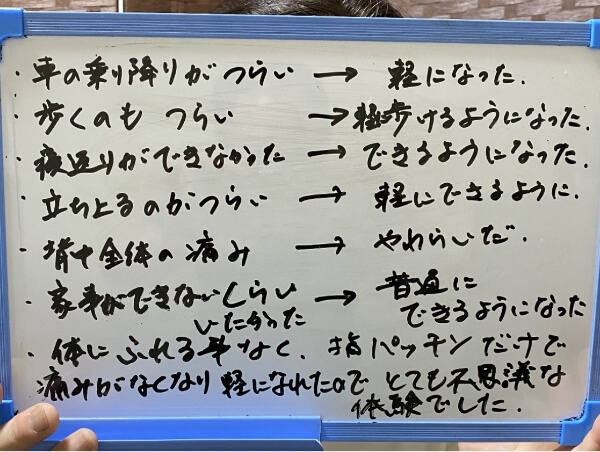 ・車の乗り降りがつらい → 軽になった.
・歩くのも つらい → 歩けるようになった.
・寝返りができなかった → できるようになった.
・立ち上るのがつらい → 軽にできるように.
・背中全体の痛み → やわらいだ.
・家事ができないくらい いたかった → 普通に できるようになった
・体にふれる事なく、指パッチンだけで
痛みがなくなり軽になれたので とても不思議な
体験でした.